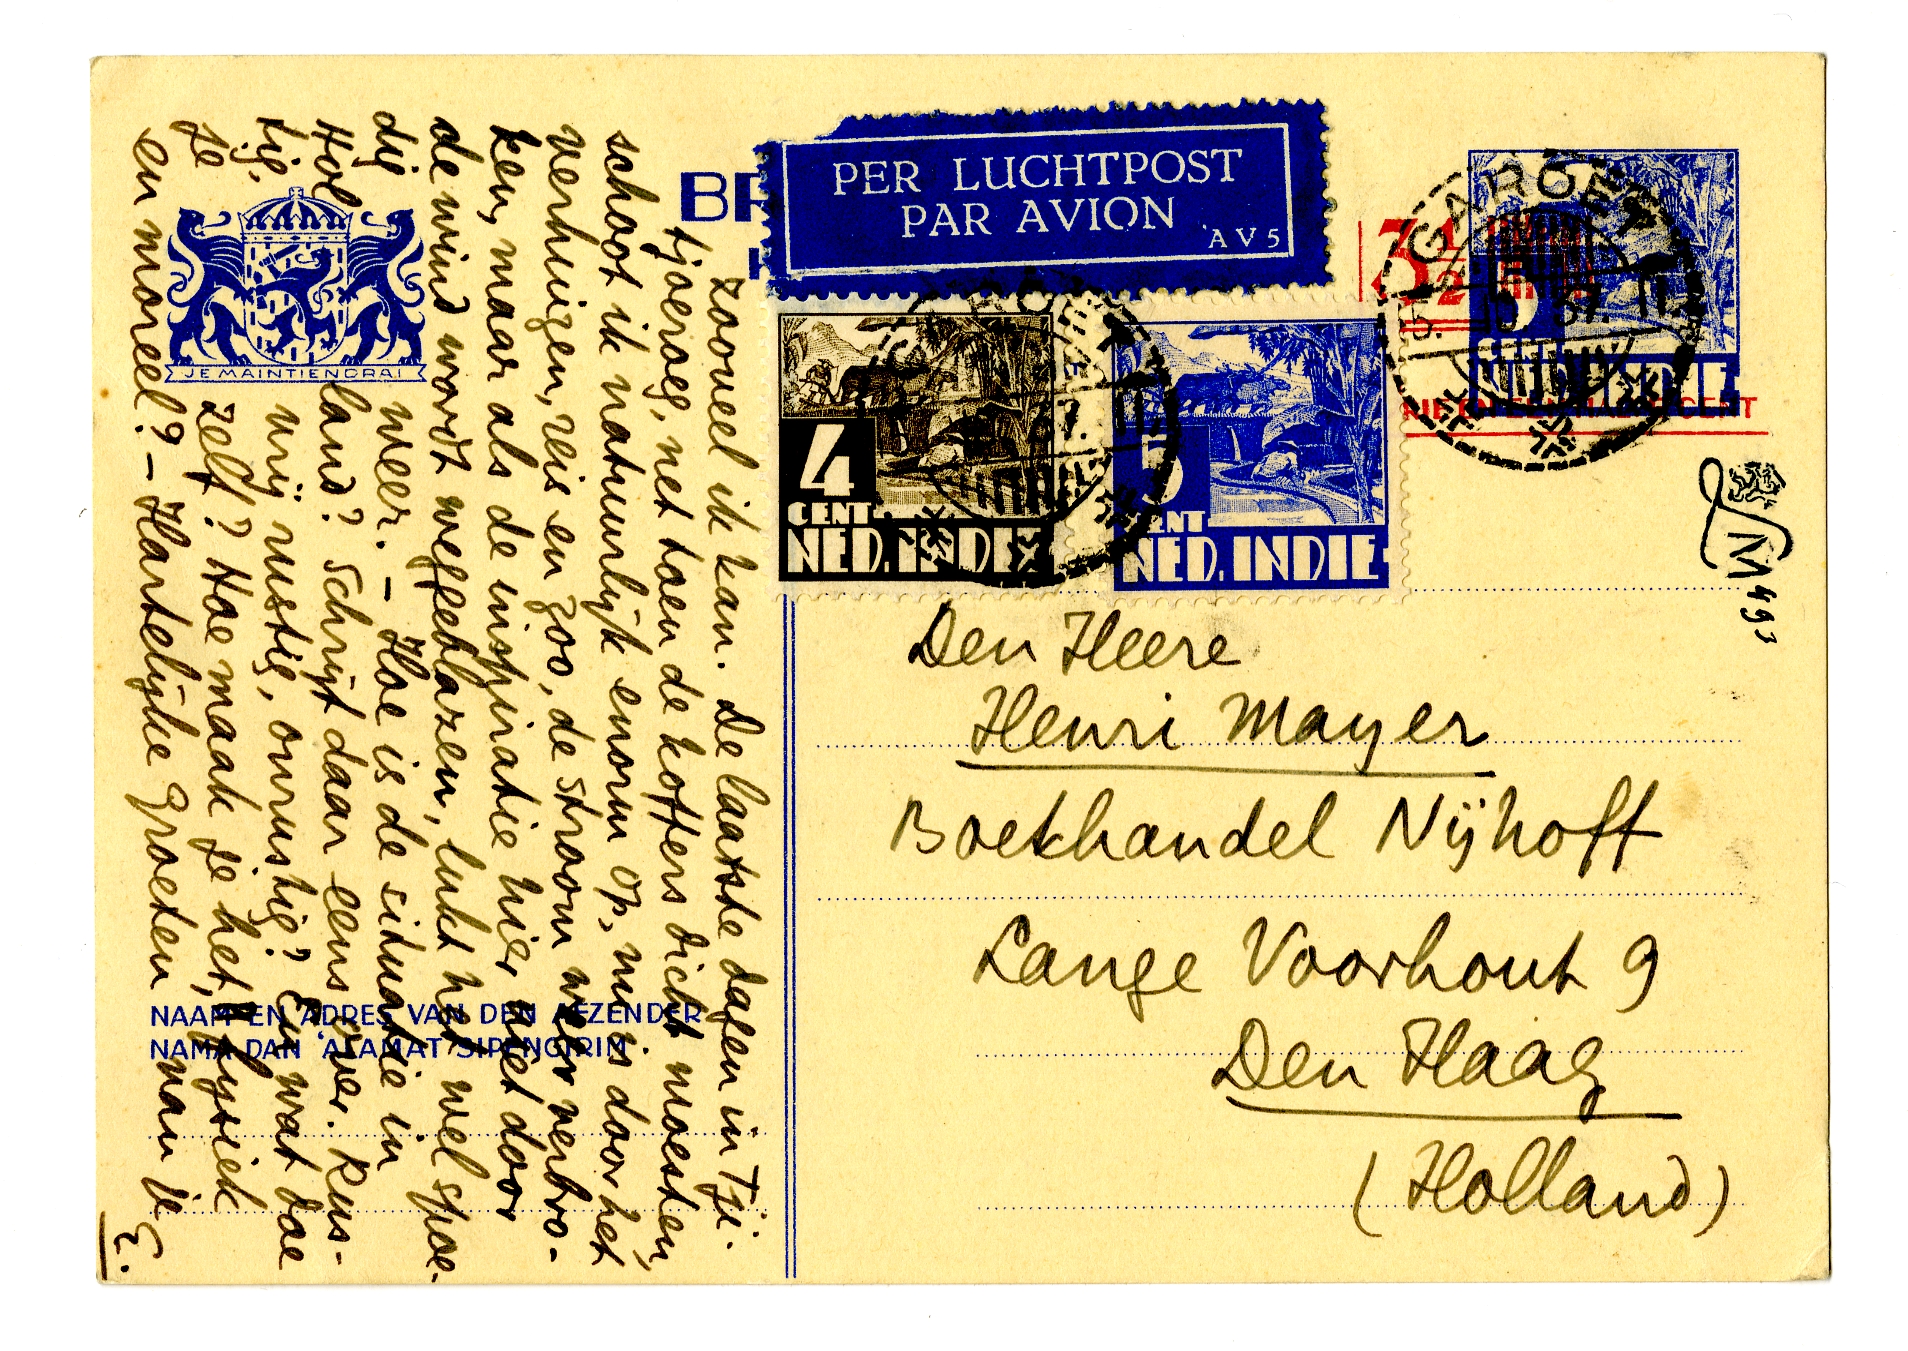 zooveel ik kan. De laatste dagen in Tji-
tjoeroeg, net toen de koffers dicht moesten,
schoot ik natuurlijk enorm op, nu is door het
verhuizen, reis en zoo, de stroom weer verbro-
ken, maar als de inspiratie hier niet door
de wind wordt weggeblazen, lukt het wel spoe-
dig weer. – Hoe is de situatie in
Holland? Schrijf daar eens over. Rus-
tig, vrij rustig, onrustig? En wat doe
je zelf? Hoe maak je het, fysiek
en moreel? – Hartelijke groeten van je
E.
JE MAINTIENDRAI
BR
PER LUCHTPOST
PAR AVION
AV5
GAROET
3½
5
NED. INDIE
4
CENT
NED. INDIE
5
CENT
NED. INDIE
M 493
Den Heere
Henri Mayer
Boekhandel Nijhoff
Lange Voorhout 9
Den Haag
(Holland)
NAAM EN ADRES VAN DEN AFZENDER
NAMA DAN 'ALAMAT SIPENGIRIM